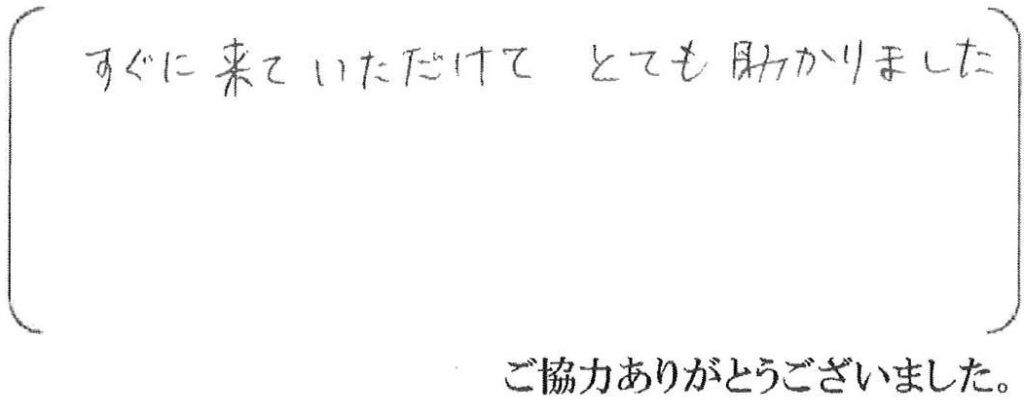 すぐに来ていただけて とても助かりました
ご協力ありがとうございました。